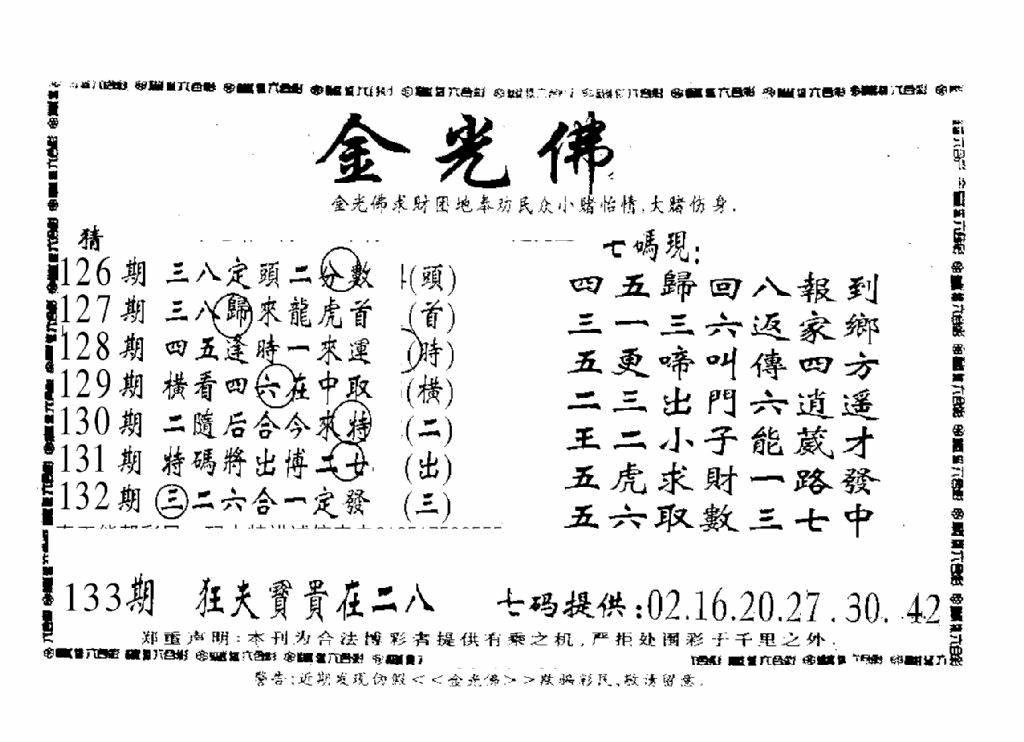 金光佛
金光佛求財团地奉劝民众小赌怡情,大赌伤身.
猜
126期 三八定頭二分數 (頭)
127期 三八歸來龍虎首 (首)
128期 四五逢時一來運 (時)
129期 橫看四六在中取 (橫)
130期 二隨后合今來特 (二)
131期 特碼將出博二七 (出)
132期 三二六合一定發 (三)
七碼現:
四五歸回八報到
三一三六返家鄉
五更啼叫傳四方
二三出門六逍遥
王二小子能葳才
五虎求財一路發
五六取數三七中
133期 狂夫寶貴在二八 七码提供:02.16.20.27.30.42
郑重声明:本刊为合法博彩者提供有乘之机,严拒处围彩于千里之外.
警告:近期发现伪假<<金光佛>>欺骗彩民,敬请留意.